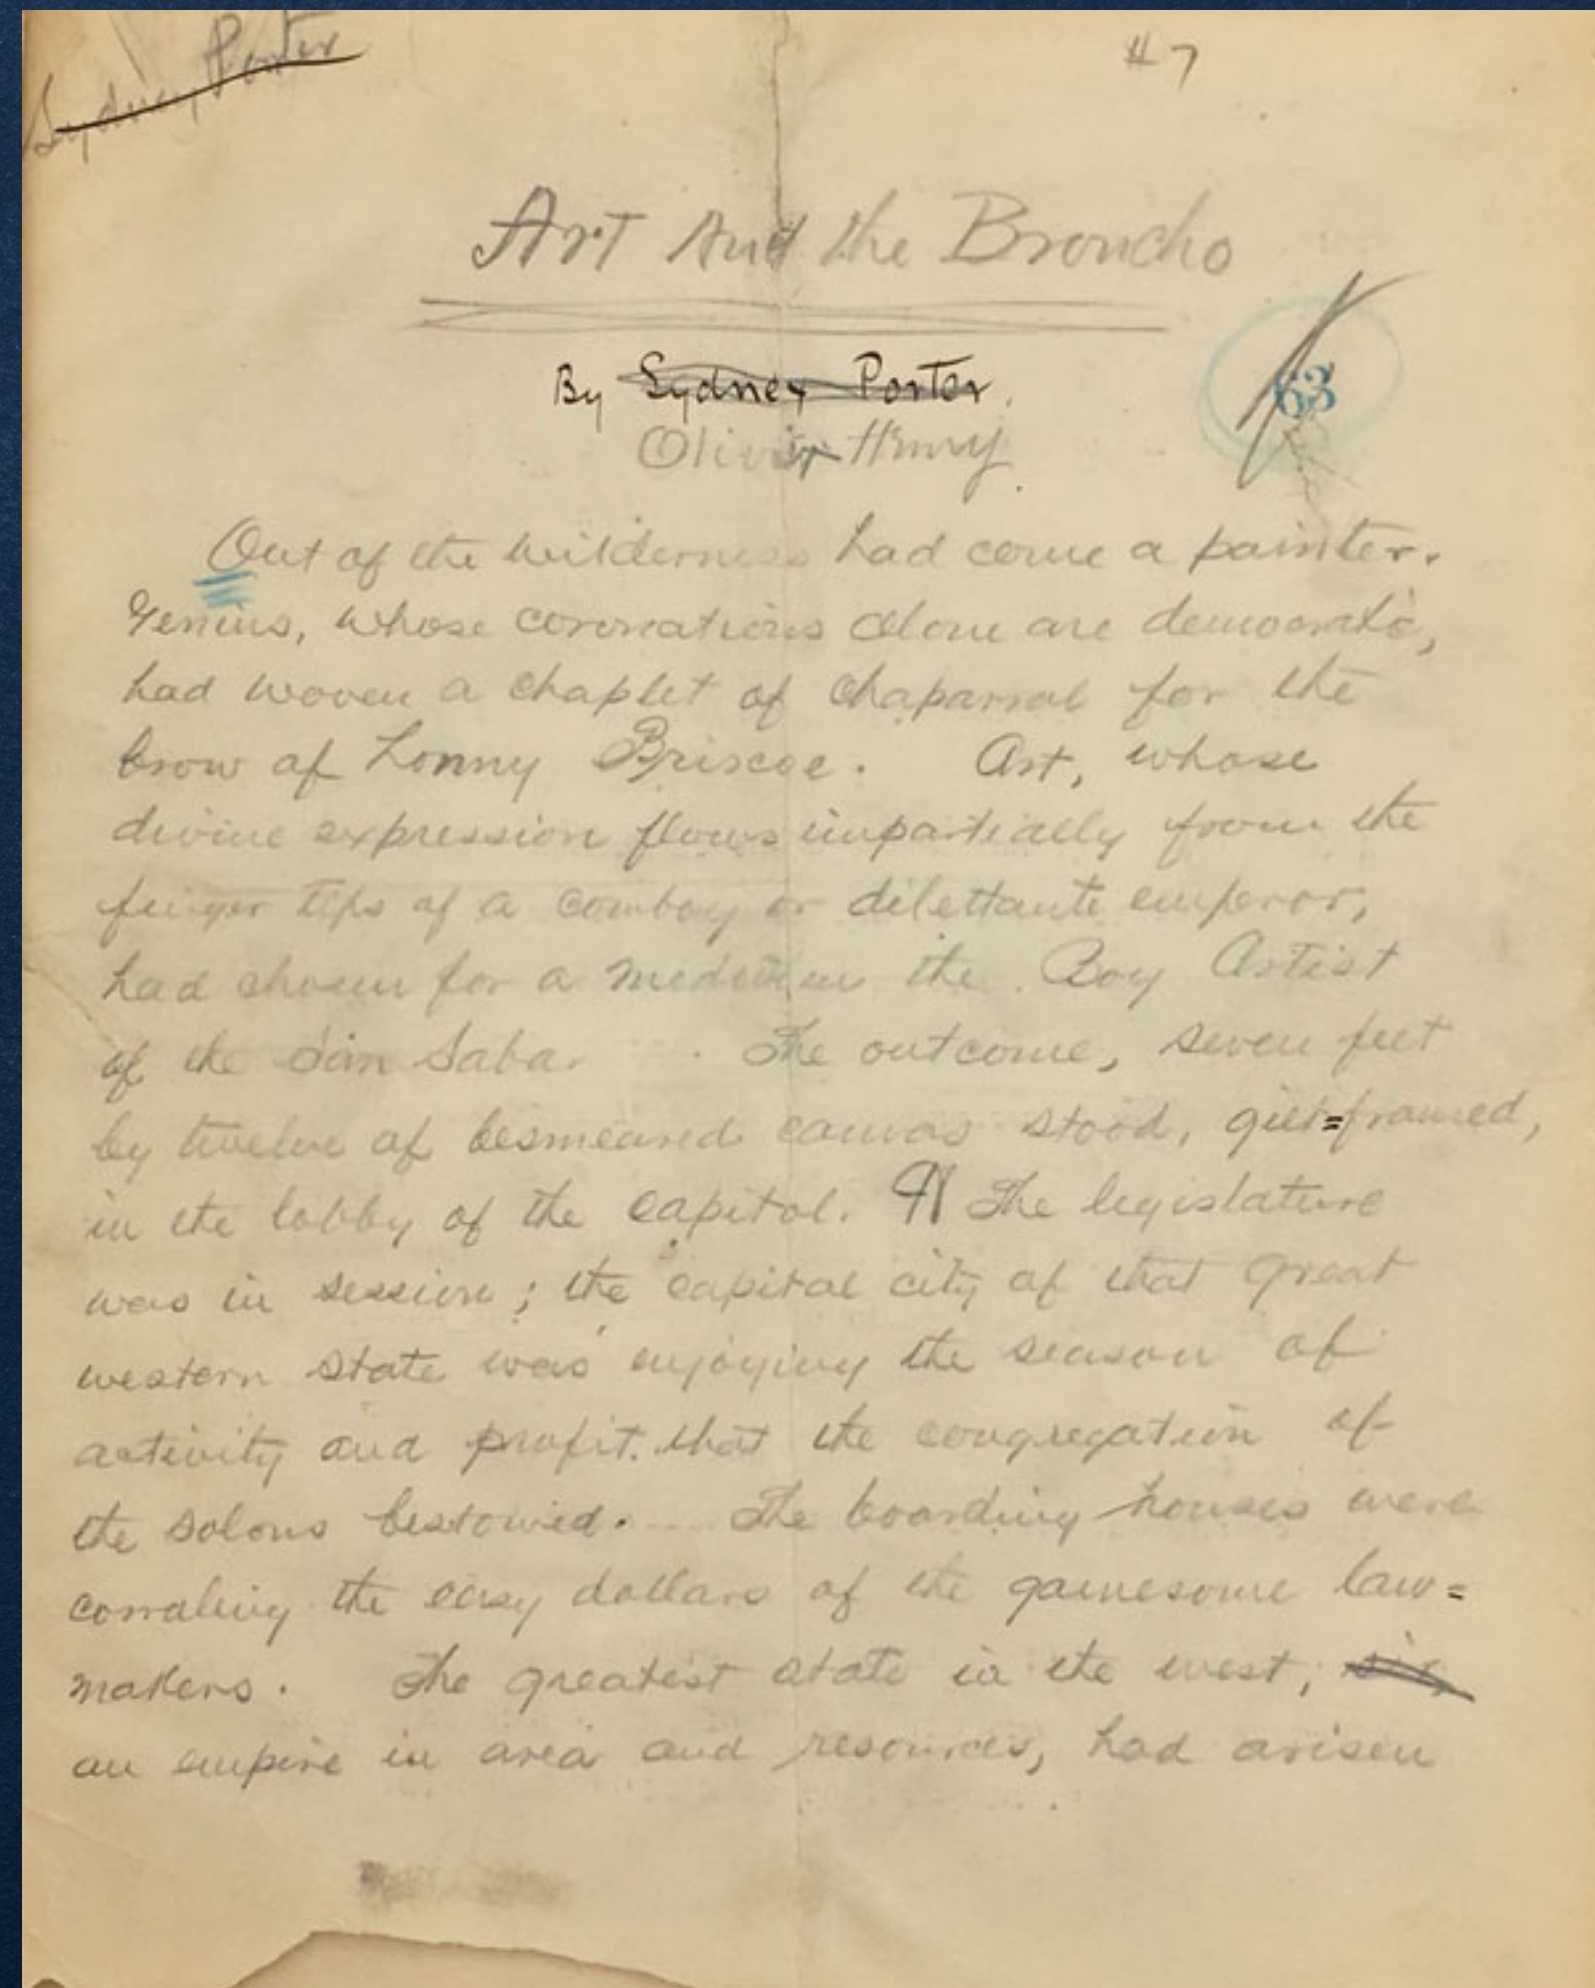 Sydney Porter
#7
Art And the Broncho
By Sydney Porter.
Olivier Henry
63
Out of the wilderness had come a painter.
Genius, whose coronations alone are democratic,
had woven a chaplet of chaparral for the
brow of Lonny Briscoe. Art, whose
divine expression flows impartially from the
finger tips of a cowboy or dilettante emperor,
had chosen for a medium the Boy Artist
of the San Saba. The outcome, seven feet
by twelve of besmeared canvas stood, gilt=framed,
in the lobby of the capitol. ¶ The legislature
was in session; the capital city of that great
western state was enjoying the season of
activity and profit that the congregation of
the solons bestowed. The boarding houses were
corraling the easy dollars of the gamesome law=
makers. The greatest state in the west,
an empire in area and resources, had arisen